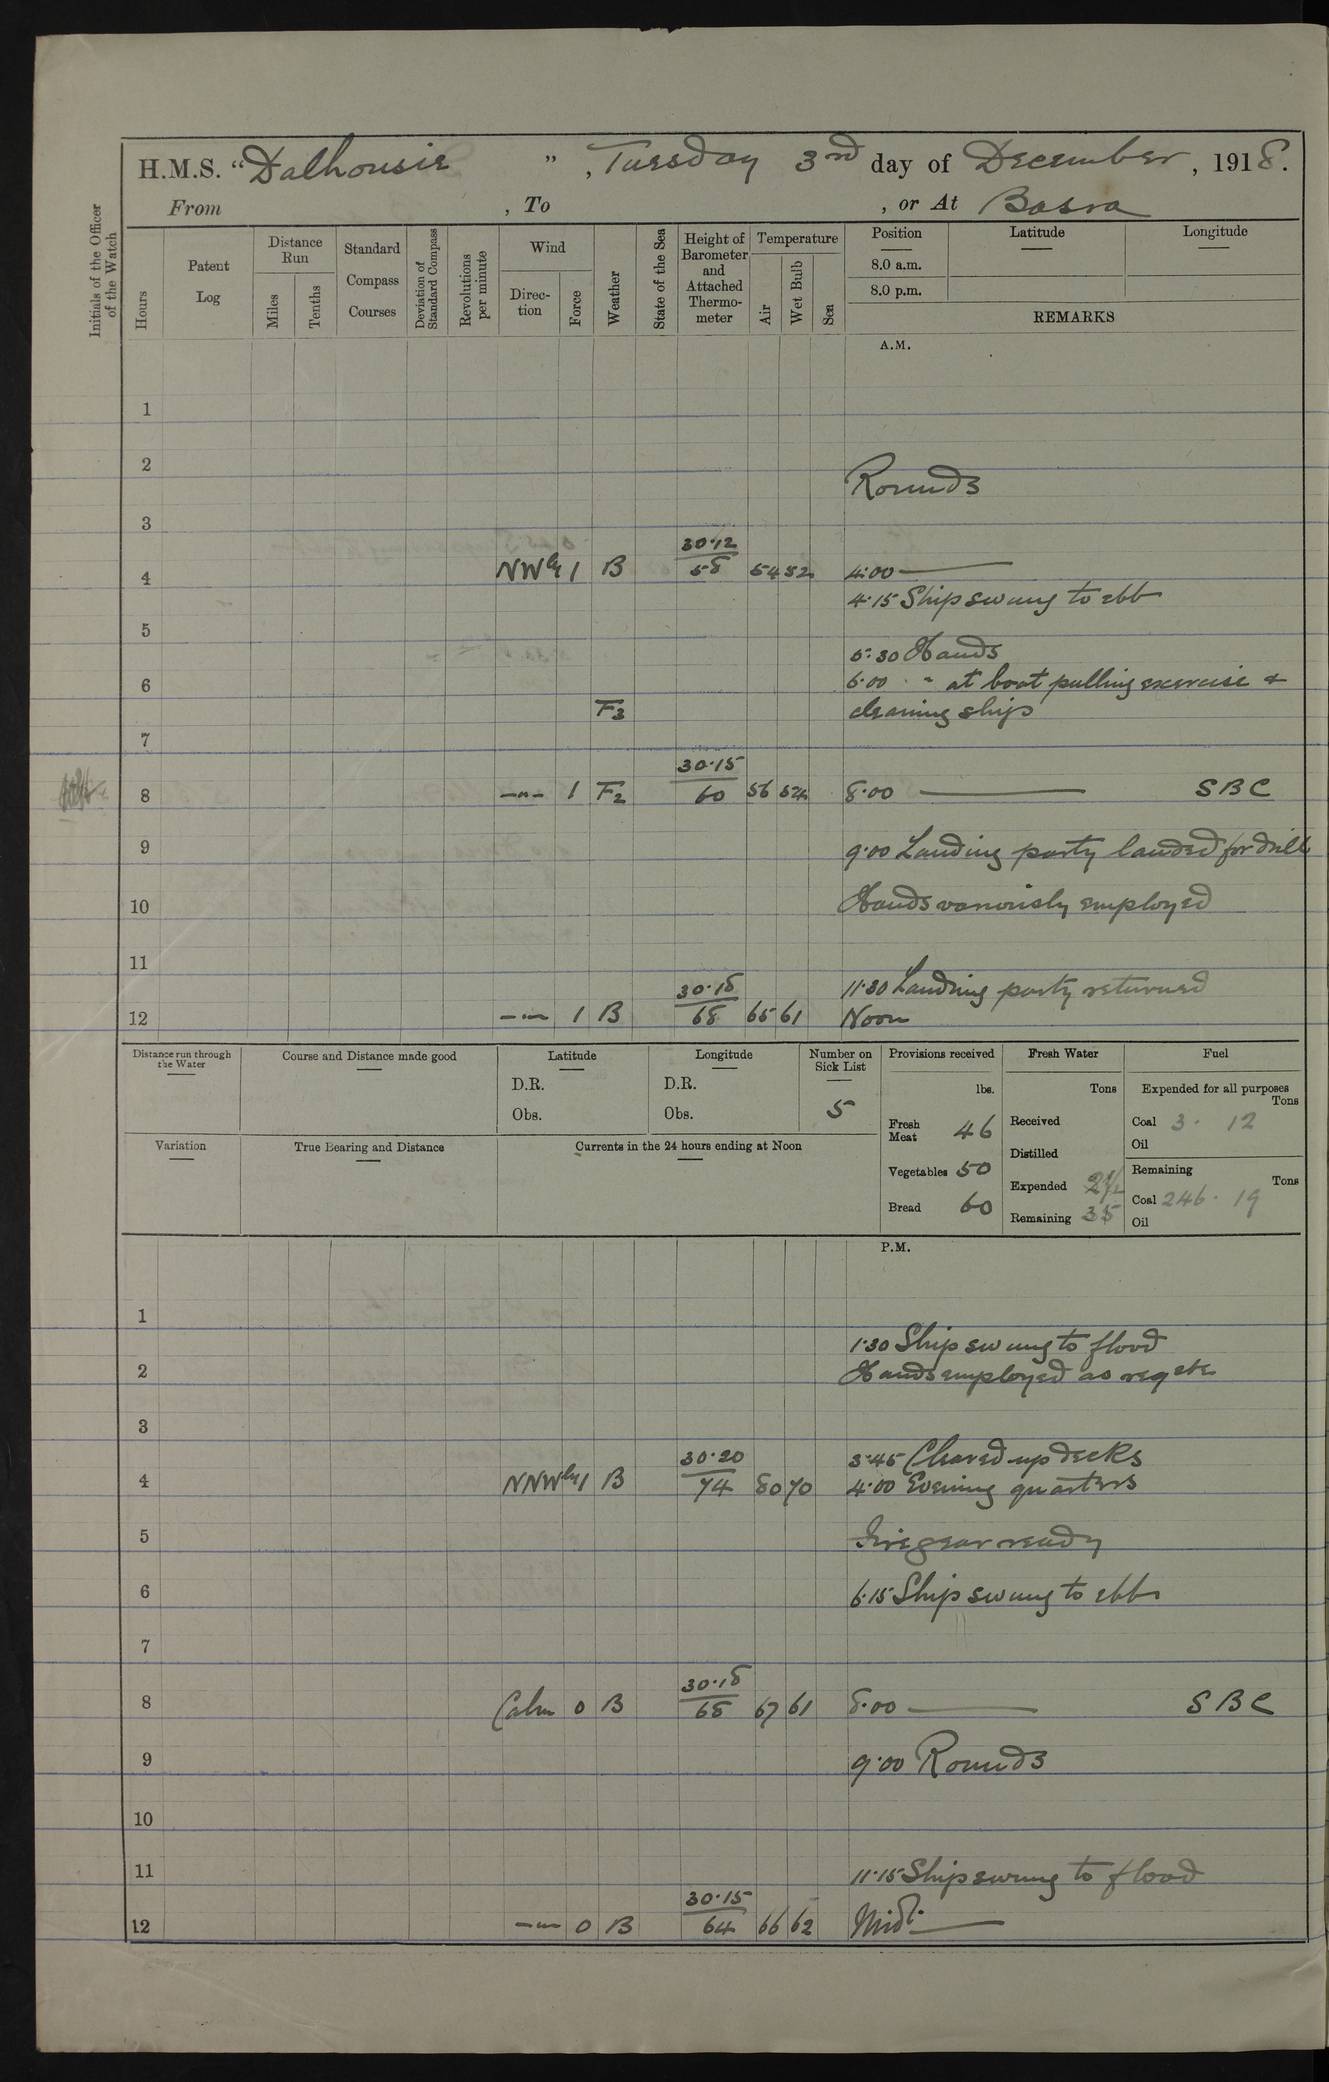 H.M.S. "Dalhousie", Tuesday 3rd day of December, 1918.
From , To , or At Basra
Initials of the Officer of the Watch
Hours
Patent Log
Distance Run
Miles
Tenths
Standard Compass Courses
Deviation of Standard Compass
Revolutions per minute
Wind
Direction
Force
Weather
State of the Sea
Height of Barometer and Attached Thermometer
Temperature
Air
Wet Bulb
Sea
Position
8.0 a.m.
8.0 p.m.
Latitude
Longitude
REMARKS
A.M.
1
2
Rounds
3
30.12
4 NWly 1 B 58 54 52 4.00
4.15 Ship swung to ebb
5
5.30 Hands
6 6.00 " at boat pulling exercise &
F3 cleaning ship
7
30.15
8 -"- 1 F2 60 56 54 8.00 SBC
9 9.00 Landing party landed for drill
10 Hands variously employed
11
30.18 11.30 Landing party returned
12 -"- 1 B 68 65 61 Noon
Distance run through the Water
Course and Distance made good
Latitude
D.R.
Obs.
Longitude
D.R.
Obs.
Number on Sick List
5
Provisions received
lbs.
Fresh Meat 46
Vegetables 50
Bread 60
Fresh Water
Tons
Received
Distilled
Expended 2½
Remaining 35
Fuel
Expended for all purposes
Tons
Coal 3. 12
Oil
Remaining
Tons
Coal 246. 19
Oil
Variation
True Bearing and Distance
Currents in the 24 hours ending at Noon
P.M.
1
1.30 Ship swung to flood
2 Hands employed as reqste
3
30.20 3.45 Cleared up decks
4 NNWly 1 B 74 80 70 4.00 Evening quarters
5 Fire gear ready
6 6.15 Ship swung to ebb
7
30.18
8 Calm 0 B 68 67 61 8.00 SBC
9 9.00 Rounds
10
11 11.15 Ship swung to flood
30.15
12 -"- 0 B 64 66 62 Midt.